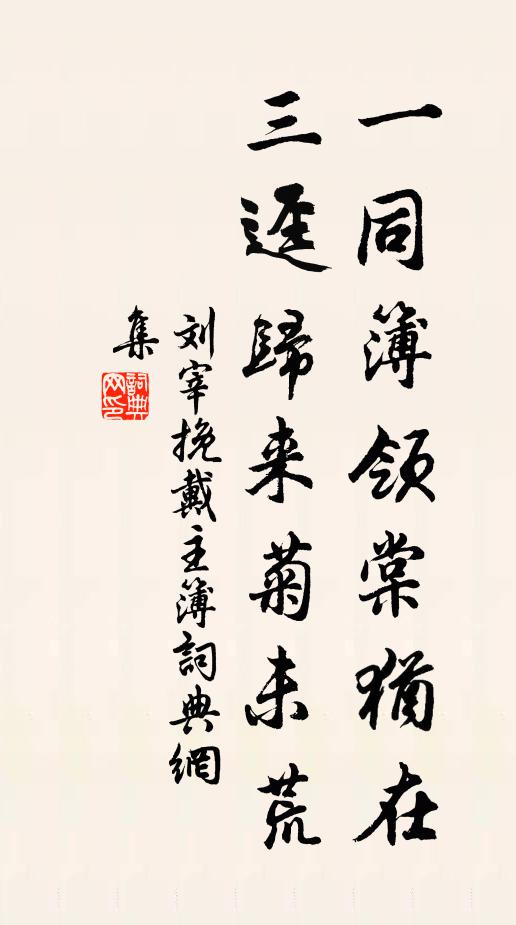 一同簿領棠猶在
三逕歸来菊未荒
刘宰挽戴主簿詞典網
集
詞典
网印